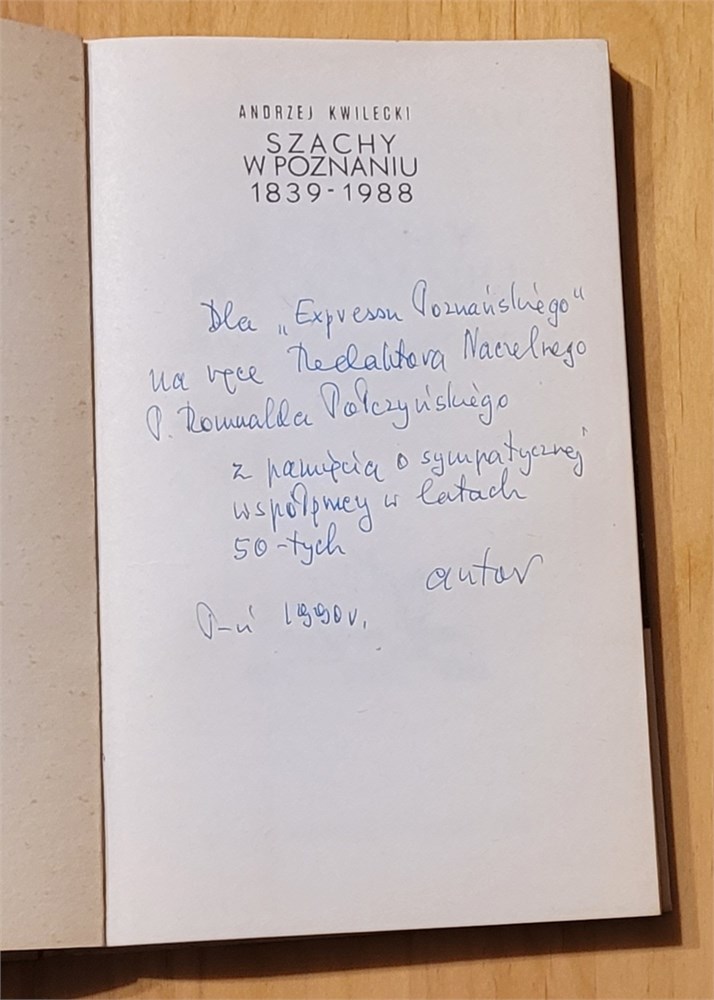 ANDRZEJ KWILECKI
SZACHY
W POZNANIU
1839-1988
Dla „Expressu Poznańskiego"
na ręce Redaktora Naczelnego
P. Romualda Połczyńskiego
z pamięcią o sympatycznej
współpracy w latach
50-tych
autor
P-ń 1990r.